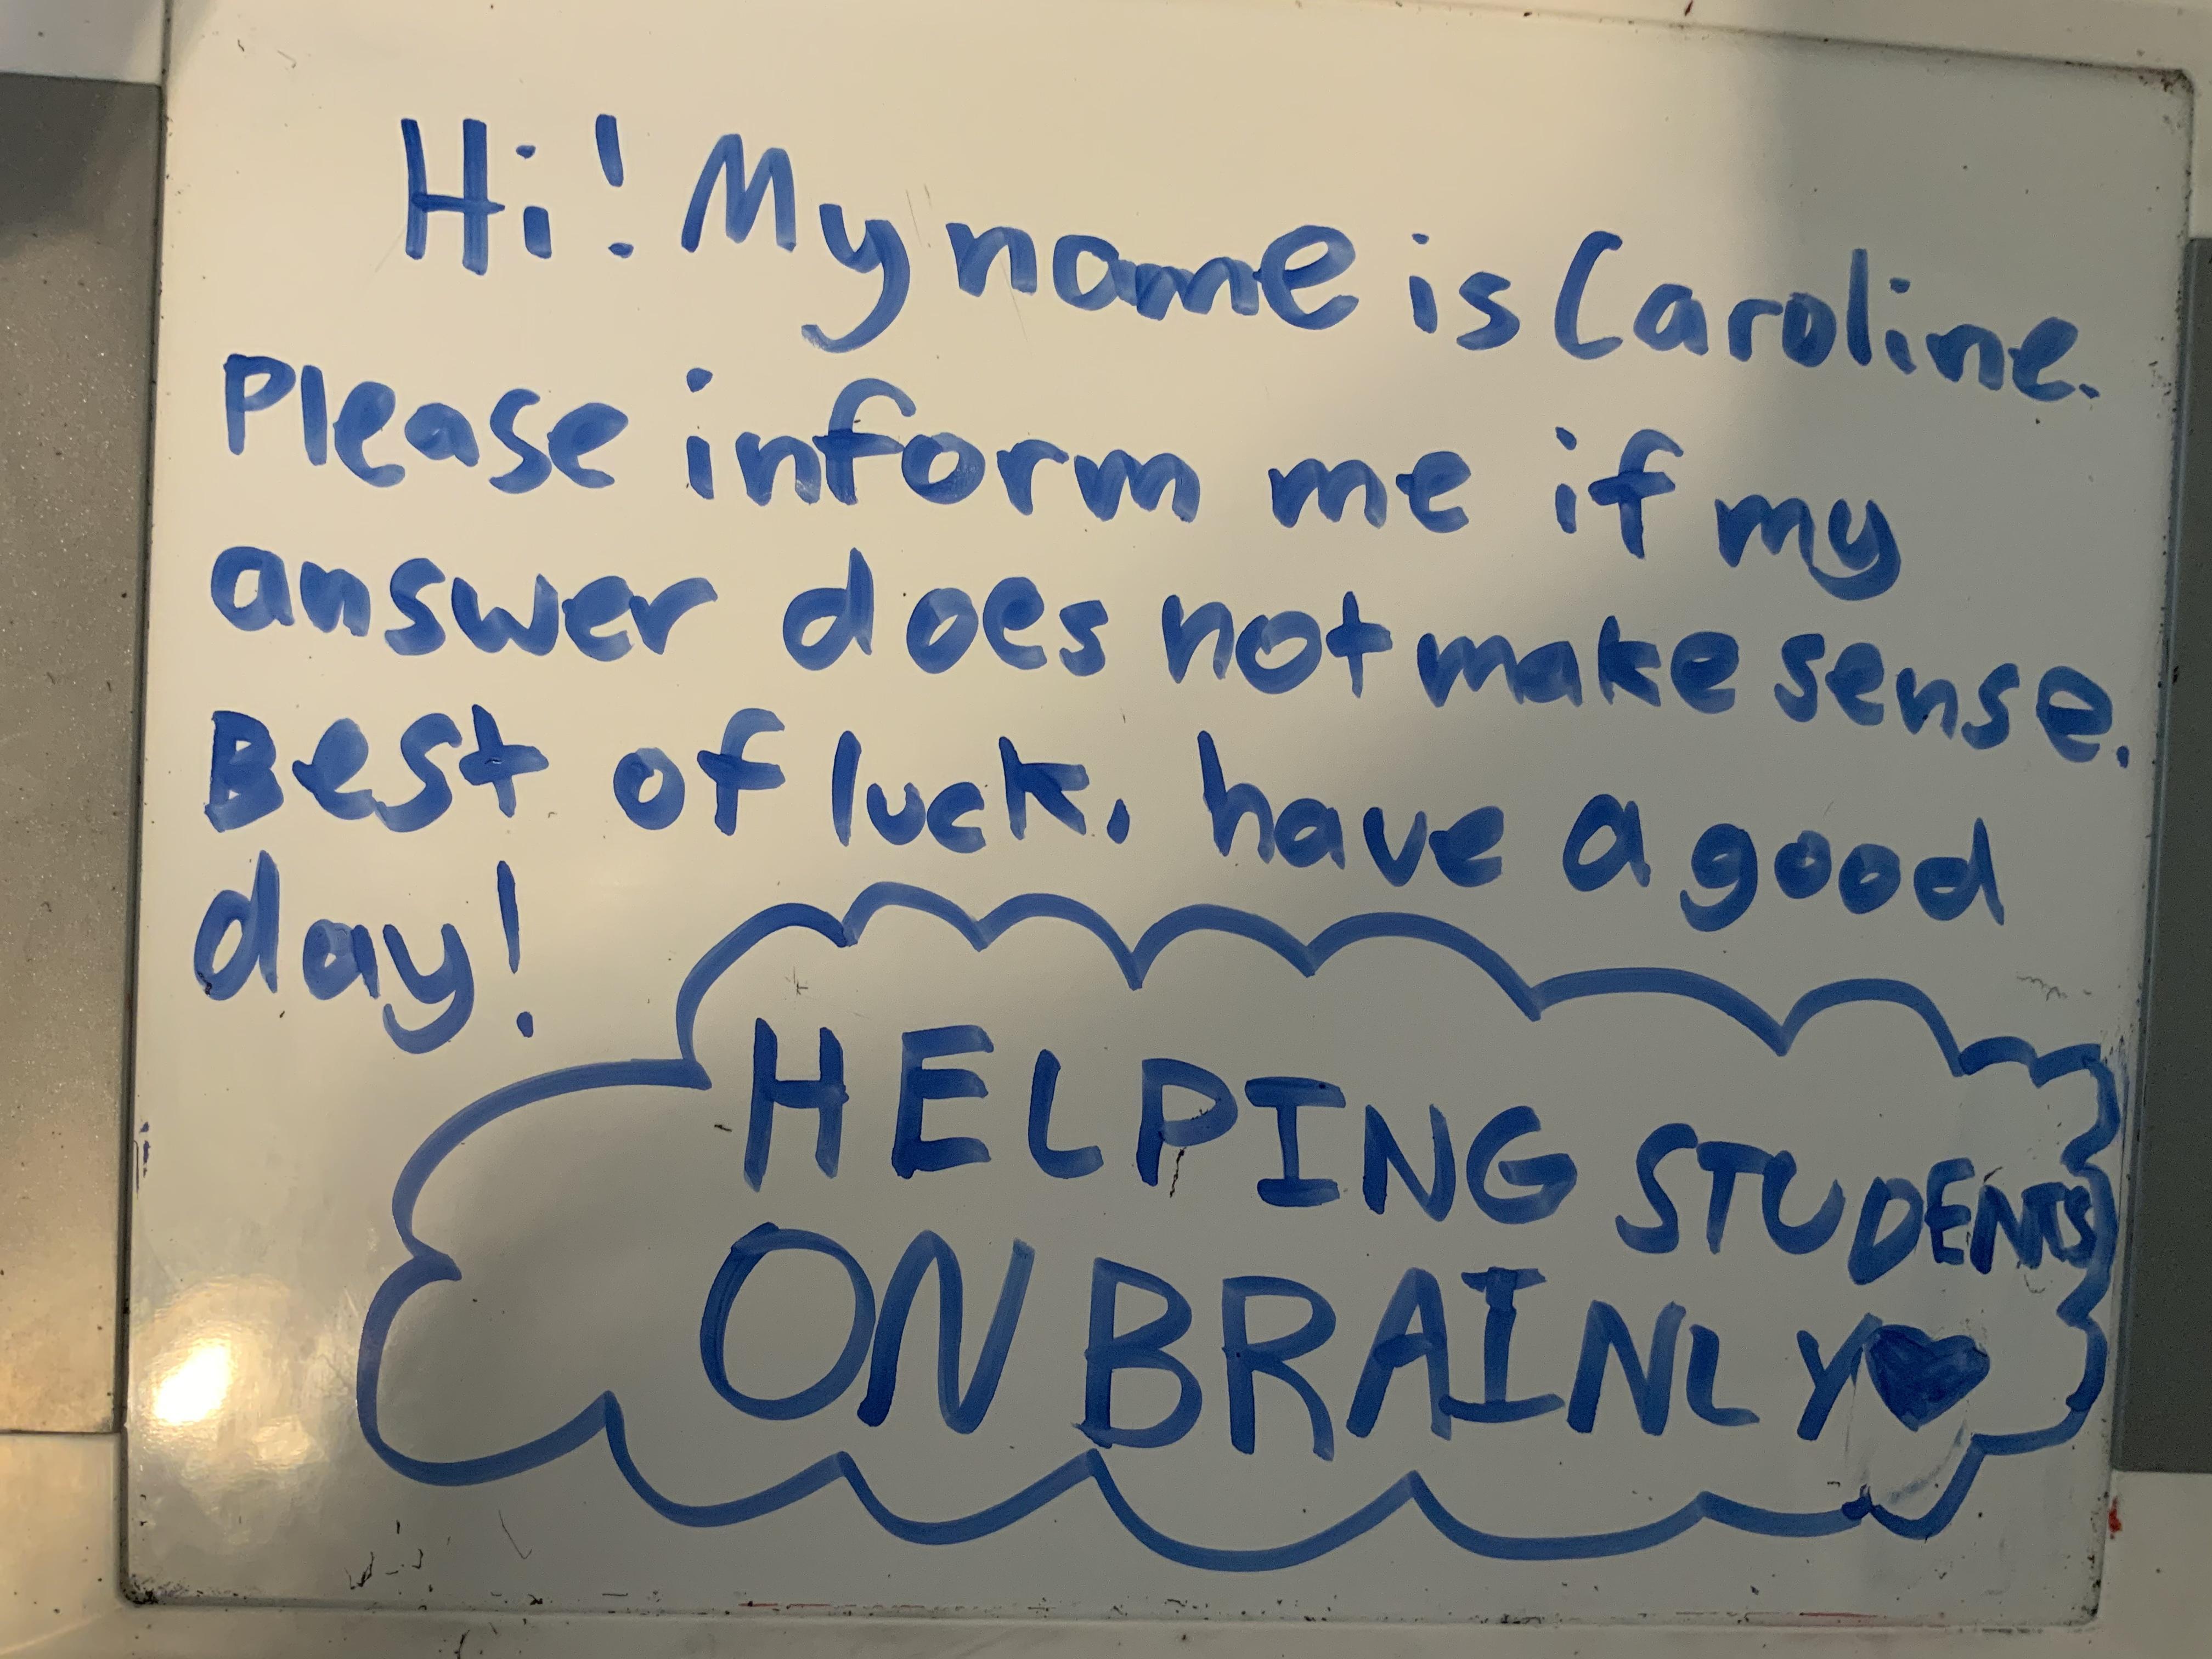 Hi! My name is Caroline.
Please inform me if my
answer does not make sense.
Best of luck, have a good
day!
HELPING STUDENTS
ON BRAINLY